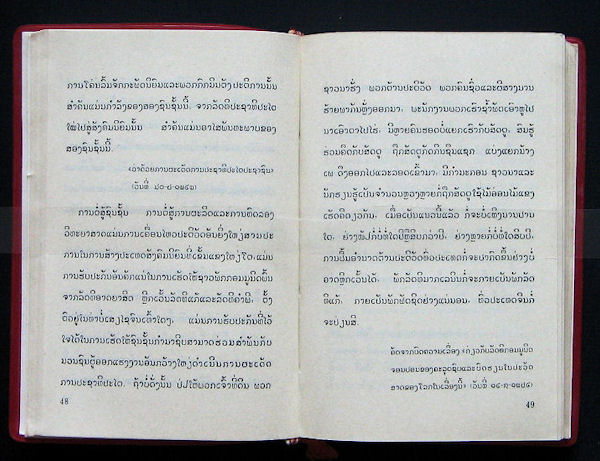 ການໂຄ່ນລົ້ມຈັກກະພັດນິຍົມແລະພວກກົກມິນຕັງປະຕິການນັ້ນ
ສຳຄັນແມ່ນກຳລັງຂອງສອງຊົນຊັ້ນນີ້. ຈາກລັດທິປະຊາທິປະໄຕ
ໃໝ່ໄປສູ່ສັງຄົມນິຍົມນັ້ນ ສຳຄັນແມ່ນອາໄສພັນທະພາບຂອງ
ສອງຊົນຊັ້ນນີ້.
ການຕໍ່ສູ້ຊົນຊັ້ນ ການຕໍ່ສູ້ການຜະລິດແລະການທົດລອງ
ວິທະຍາສາດແມ່ນການເຄື່ອນໄຫວປະຕິວັດອັນຍິ່ງໃຫຍ່ສາມປະ
ການໃນການສ້າງປະເທດສັງຄົມນິຍົມທີ່ເຂັ້ມແຂງໃຫຍ່ໂຕ, ແມ່ນ
ການຮັບປະກັນອັນຄັກແນ່ໃນການເຮັດໃຫ້ຊາວພັກກອມມູນິດພົ້ນ
ຈາກລັດທິອາດຍາສິດ ຫຼີກເວັ້ນລັດທິແກ້ແລະລັດທິຄຳພີ, ຕັ້ງ
ໄຈໄດ້ໃນການເຮັດໃຫ້ຊົນຊັ້ນກຳມາຊີບສາມາດຮ່ວມສຳພັນກັບ
ມວນຊົນຜູ້ອອກແຮງງານອັນກວ້າງໃຫຍ່ດຳເນີນການຜະເດັດ
ການປະຊາທິປະໄຕ. ຖ້າບໍ່ດັ່ງນັ້ນ ປ່ອຍໃຫ້ພວກເຈົ້າທີ່ດິນ ພວກ
48
ຊາວນາຮັ່ງ ພວກຕ້ານປະຕິວັດ ພວກຄົນຊົ່ວແລະຜີສາງມານ
ຮ້າຍພາກັນຫຼັ່ງອອກມາ, ພະນັກງານພວກເຮົາຊ້ຳພັດເອົາຫູໄປ
ນາເອົາຕາໄປໄຮ່, ມີຫຼາຍຄົນຮອດບໍ່ແຍກເຮົາກັບສັດຕູ, ລືມຮູ້
ຮ່ວມຄຶກກັບສັດຕູ ຖືກສັດຕູກັດກິນຊຶມແຊກ ແບ່ງແຍກມ້າງ
ເພ ດຶງອອກໄປແລະລອດເຂົ້າມາ, ມີກຳມະກອນ ຊາວນາແລະ
ນັກຮຽນຮູ້ເປັນຈຳນວນຫຼວງຫຼາຍກໍຖືກສັດຕູໃຊ້ໄມ້ອ່ອນໄມ້ແຂງ
ເຮັດຄືດຽວກັນ, ເມື່ອເປັນແນວນີ້ແລ້ວ ກໍຈະບໍ່ເຫິງນານປານ
ໃດ, ຢ່າງໜ້ອຍກໍບໍ່ພໍໃດປີຫຼືສິບກວ່າປີ, ຢ່າງຫຼາຍກໍບໍ່ພໍໃດສິບປີ,
ການຟື້ນອຳນາດຕ້ານປະຕິວັດທົ່ວປະເທດກໍຈະປາກົດຂຶ້ນຢ່າງບໍ່
ອາດຫຼີກເວັ້ນໄດ້, ພັກລັດທິມາກເລນິນກໍຈະກາຍເປັນພັກລັດ
ທິແກ້, ກາຍເປັນພັກຟັດຊິດຢ່າງແນ່ນອນ, ທົ່ວປະເທດຈີນກໍ
ຈະປ່ຽນສີ.
49